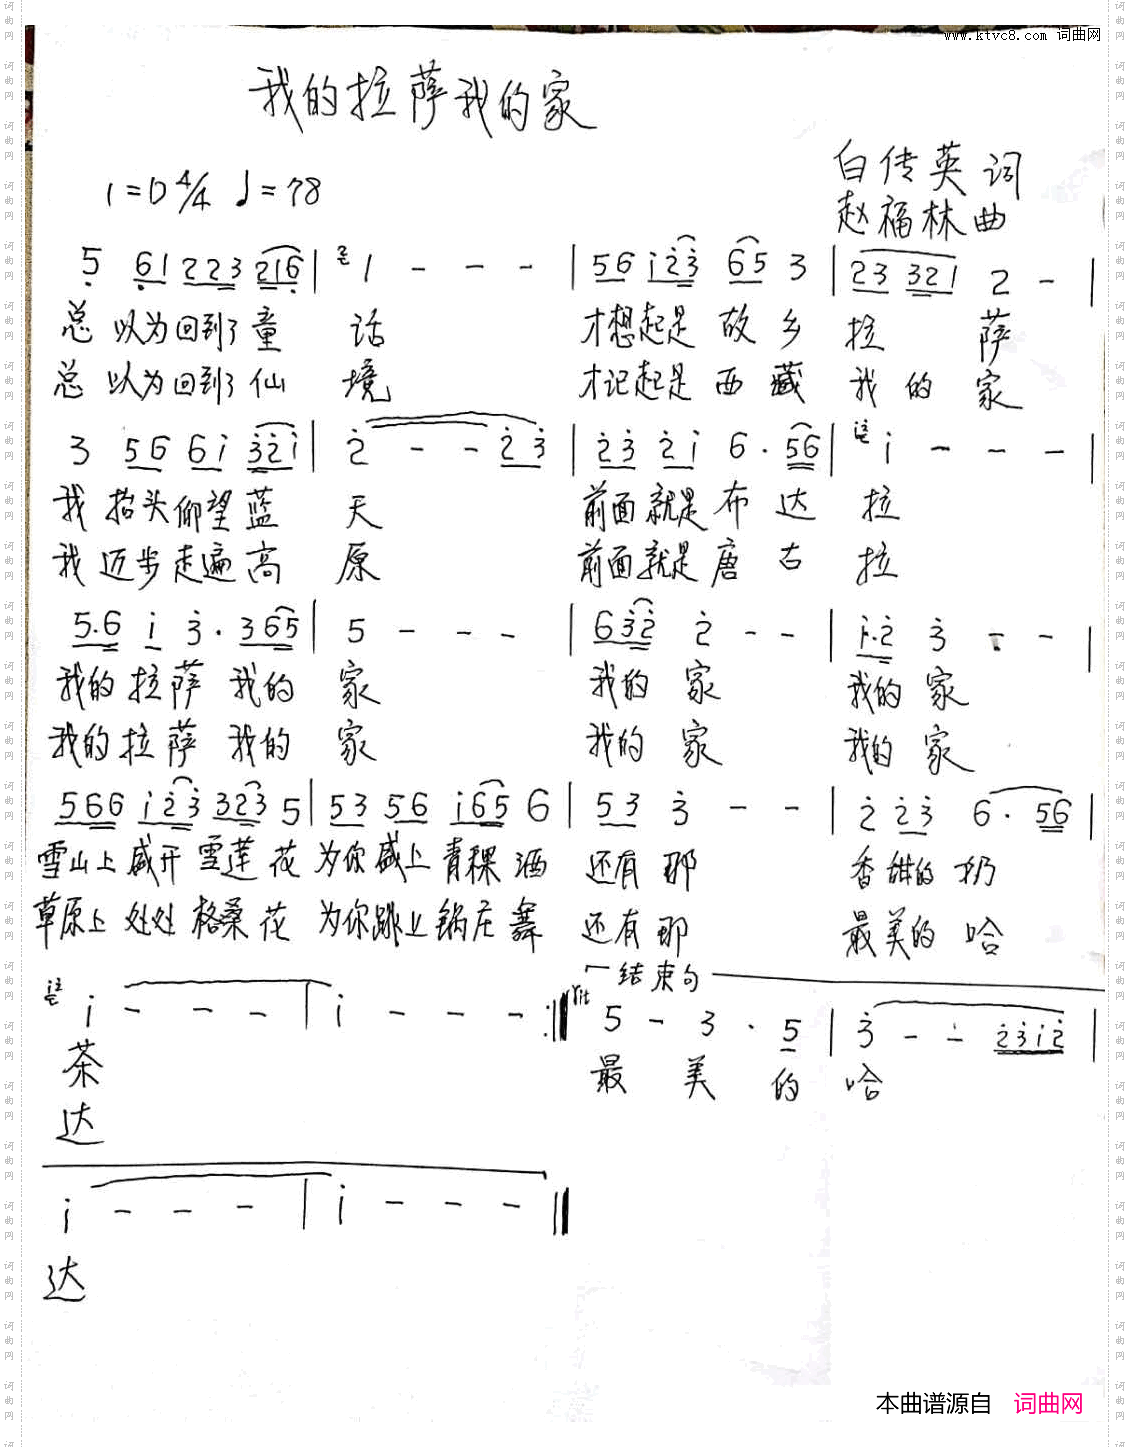 www.ktvc8.com 词曲网
我的拉萨我的家
白传英 词
1=D 4/4 ♩=78
赵福林 曲
5 61 223 216 | 1 - - - | 56 i23 65 3 | 23 321 2 - |
总 以为回到了童 话 才想起是 故乡 拉 萨
总 以为回到了仙 境 才记起是 西藏 我的家
3 56 6i 32i | 2 - - 23 | 23 2i 6·56 | i - - - |
我 抬头仰望蓝 天 前面就是布达 拉
我 迈步走遍高 原 前面就是唐古 拉
5·6 i 3·365 | 5 - - - | 632 2 - - | i·2 3 - - |
我的拉萨 我的 家 我的 家 我的 家
我的拉萨 我的 家 我的 家 我的 家
566 i23 323 5 | 53 56 i65 6 | 53 3 - - | 2 23 6·56 |
雪山上盛开雪莲花 为你盛上青稞酒 还有那 香甜的奶
草原上处处格桑花 为你跳上锅庄舞 还有那 最美的哈
结束句
i - - - | i - - - :‖ rit 5 - 3·5 | 3 - - 23i2 |
茶 最 美 的 哈
达
i - - - | i - - - ‖
达
本曲谱源自 词曲网